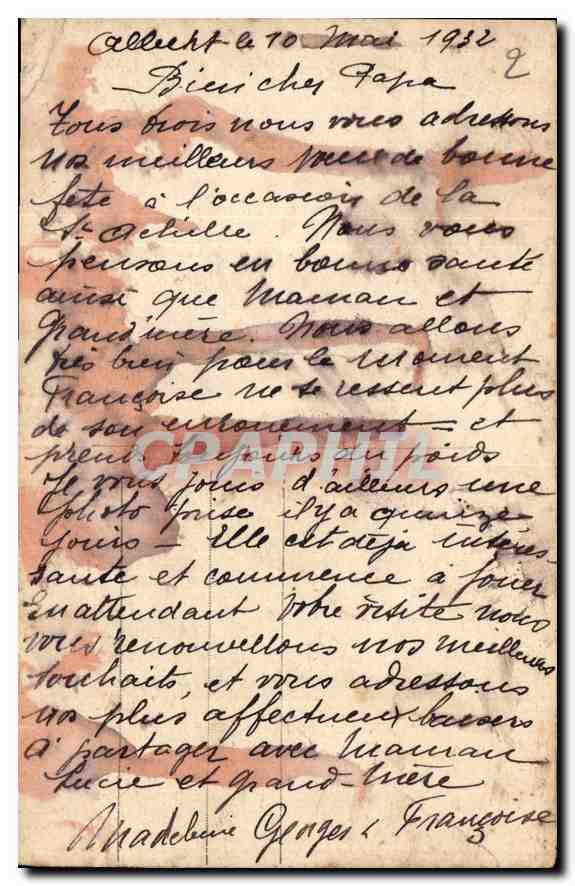 Albert le 10 Mai 1932
2
Bien cher Papa
Tous trois nous vous adressons
nos meilleurs voeux de bonne
fête à l'occasion de la
St Achille. Nous vous
pensons en bonne santé
ainsi que Maman et
Grand'mère. Nous allons
très bien pour le moment
Françoise ne se ressent plus
de son enrouement - et
prend toujours du poids
Je vous joins d'ailleurs une
photo prise il y a quinze
jours - Elle est déjà intéres-
sante et commence à jouer
En attendant votre visite nous
vous renouvellons nos meilleurs
souhaits, et vous adressons
nos plus affectueux baisers
à partager avec Maman
Lucie et grand-mère
Madeleine Georges & Françoise
CPAPHIL